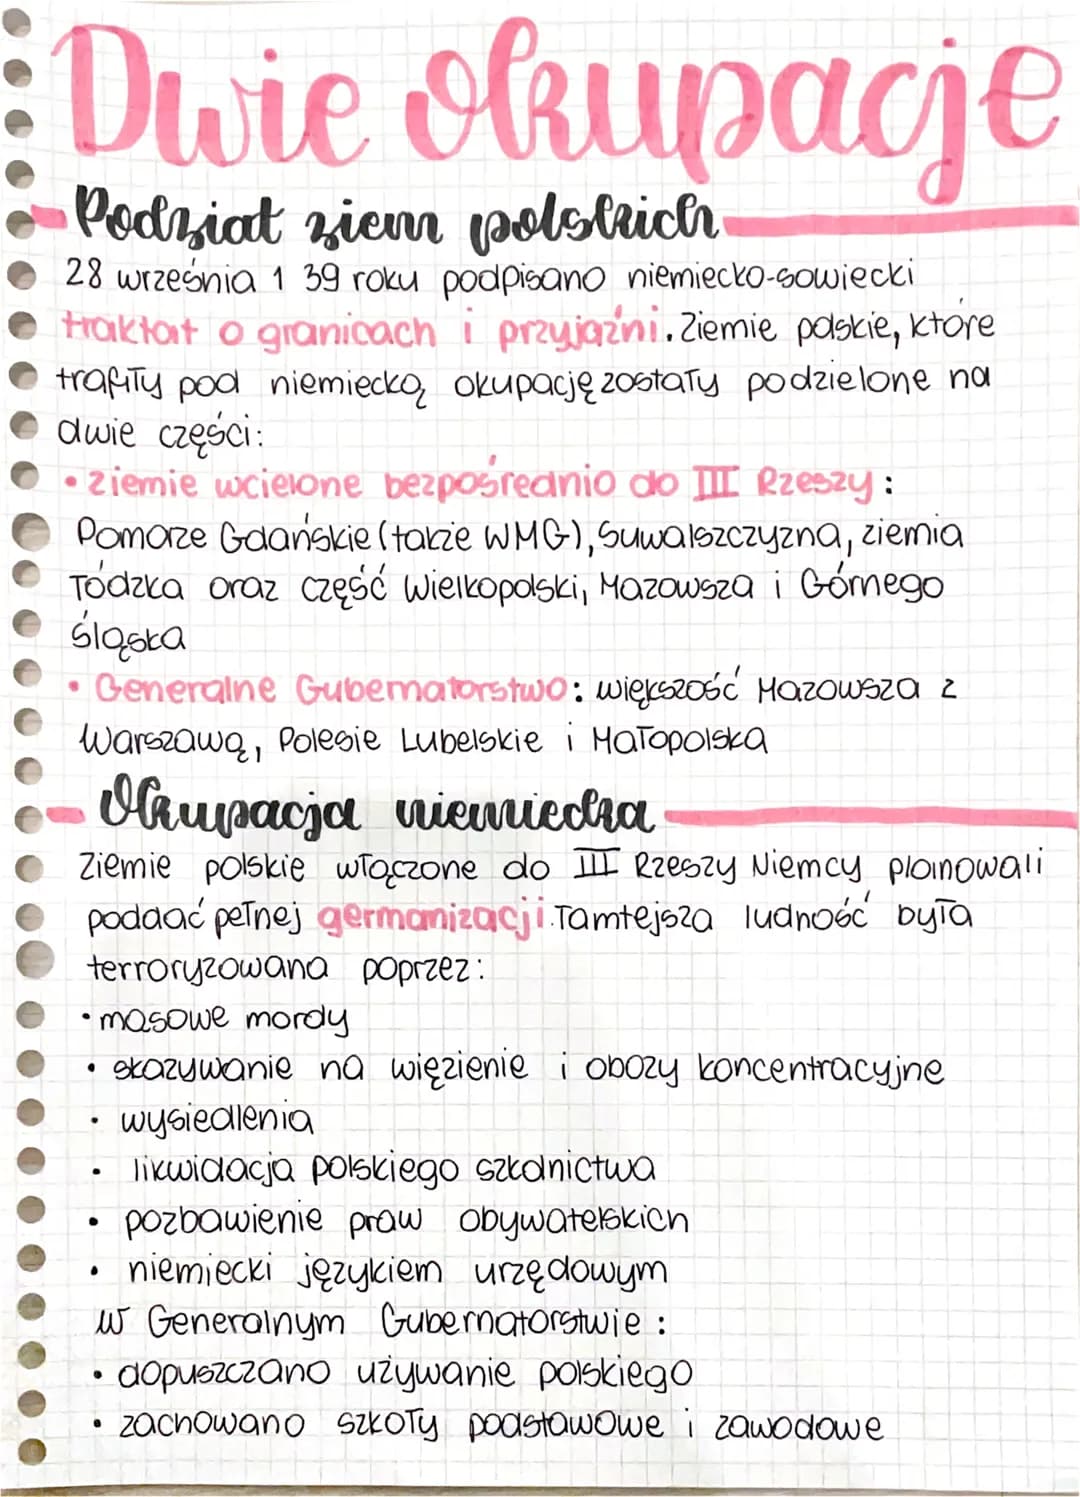 Dwie okupacje
Podział ziem polskich
28 września 1 39 roku podpisano niemiecko-sowiecki
traktat o granicach i przyjaźni. Ziemie polskie, które
trafiły pod niemiecką okupację zostały podzielone na
dwie części:
• ziemie wcielone bezpośrednio do III Rzeszy:
Pomorze Gdańskie (także WMG), Suwalszczyzna, ziemia
łódzka oraz część Wielkopolski, Mazowsza i Górnego
Śląska
• Generalne Gubernatorstwo: większość Mazowsza z
Warszawą, Polesie Lubelskie i Małopolska
Okupacja niemiecka
Ziemie polskie włączone do III Rzeszy Niemcy planowali
poddać pełnej germanizacji. Tamtejsza ludność była
terroryzowana poprzez:
• masowe mordy
• skazywanie na więzienie i obozy koncentracyjne
• wysiedlenia
• likwidacja polskiego szkolnictwa
• pozbawienie praw obywatelskich
• niemiecki językiem urzędowym
w Generalnym Gubernatorstwie:
• dopuszczano używanie polskiego
• zachowano szkoły podstawowe i zawodowe